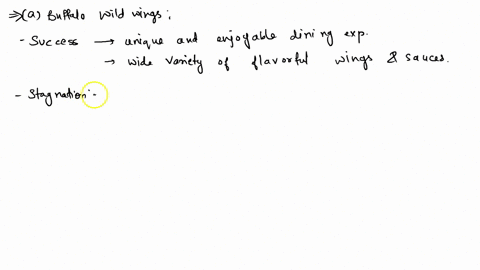 ⇒(a) Buffalo wild wings;
- Success → unique and enjoyable dining exp.
→ wide variety of flavorful wings & sauces.
- Stagnation:-